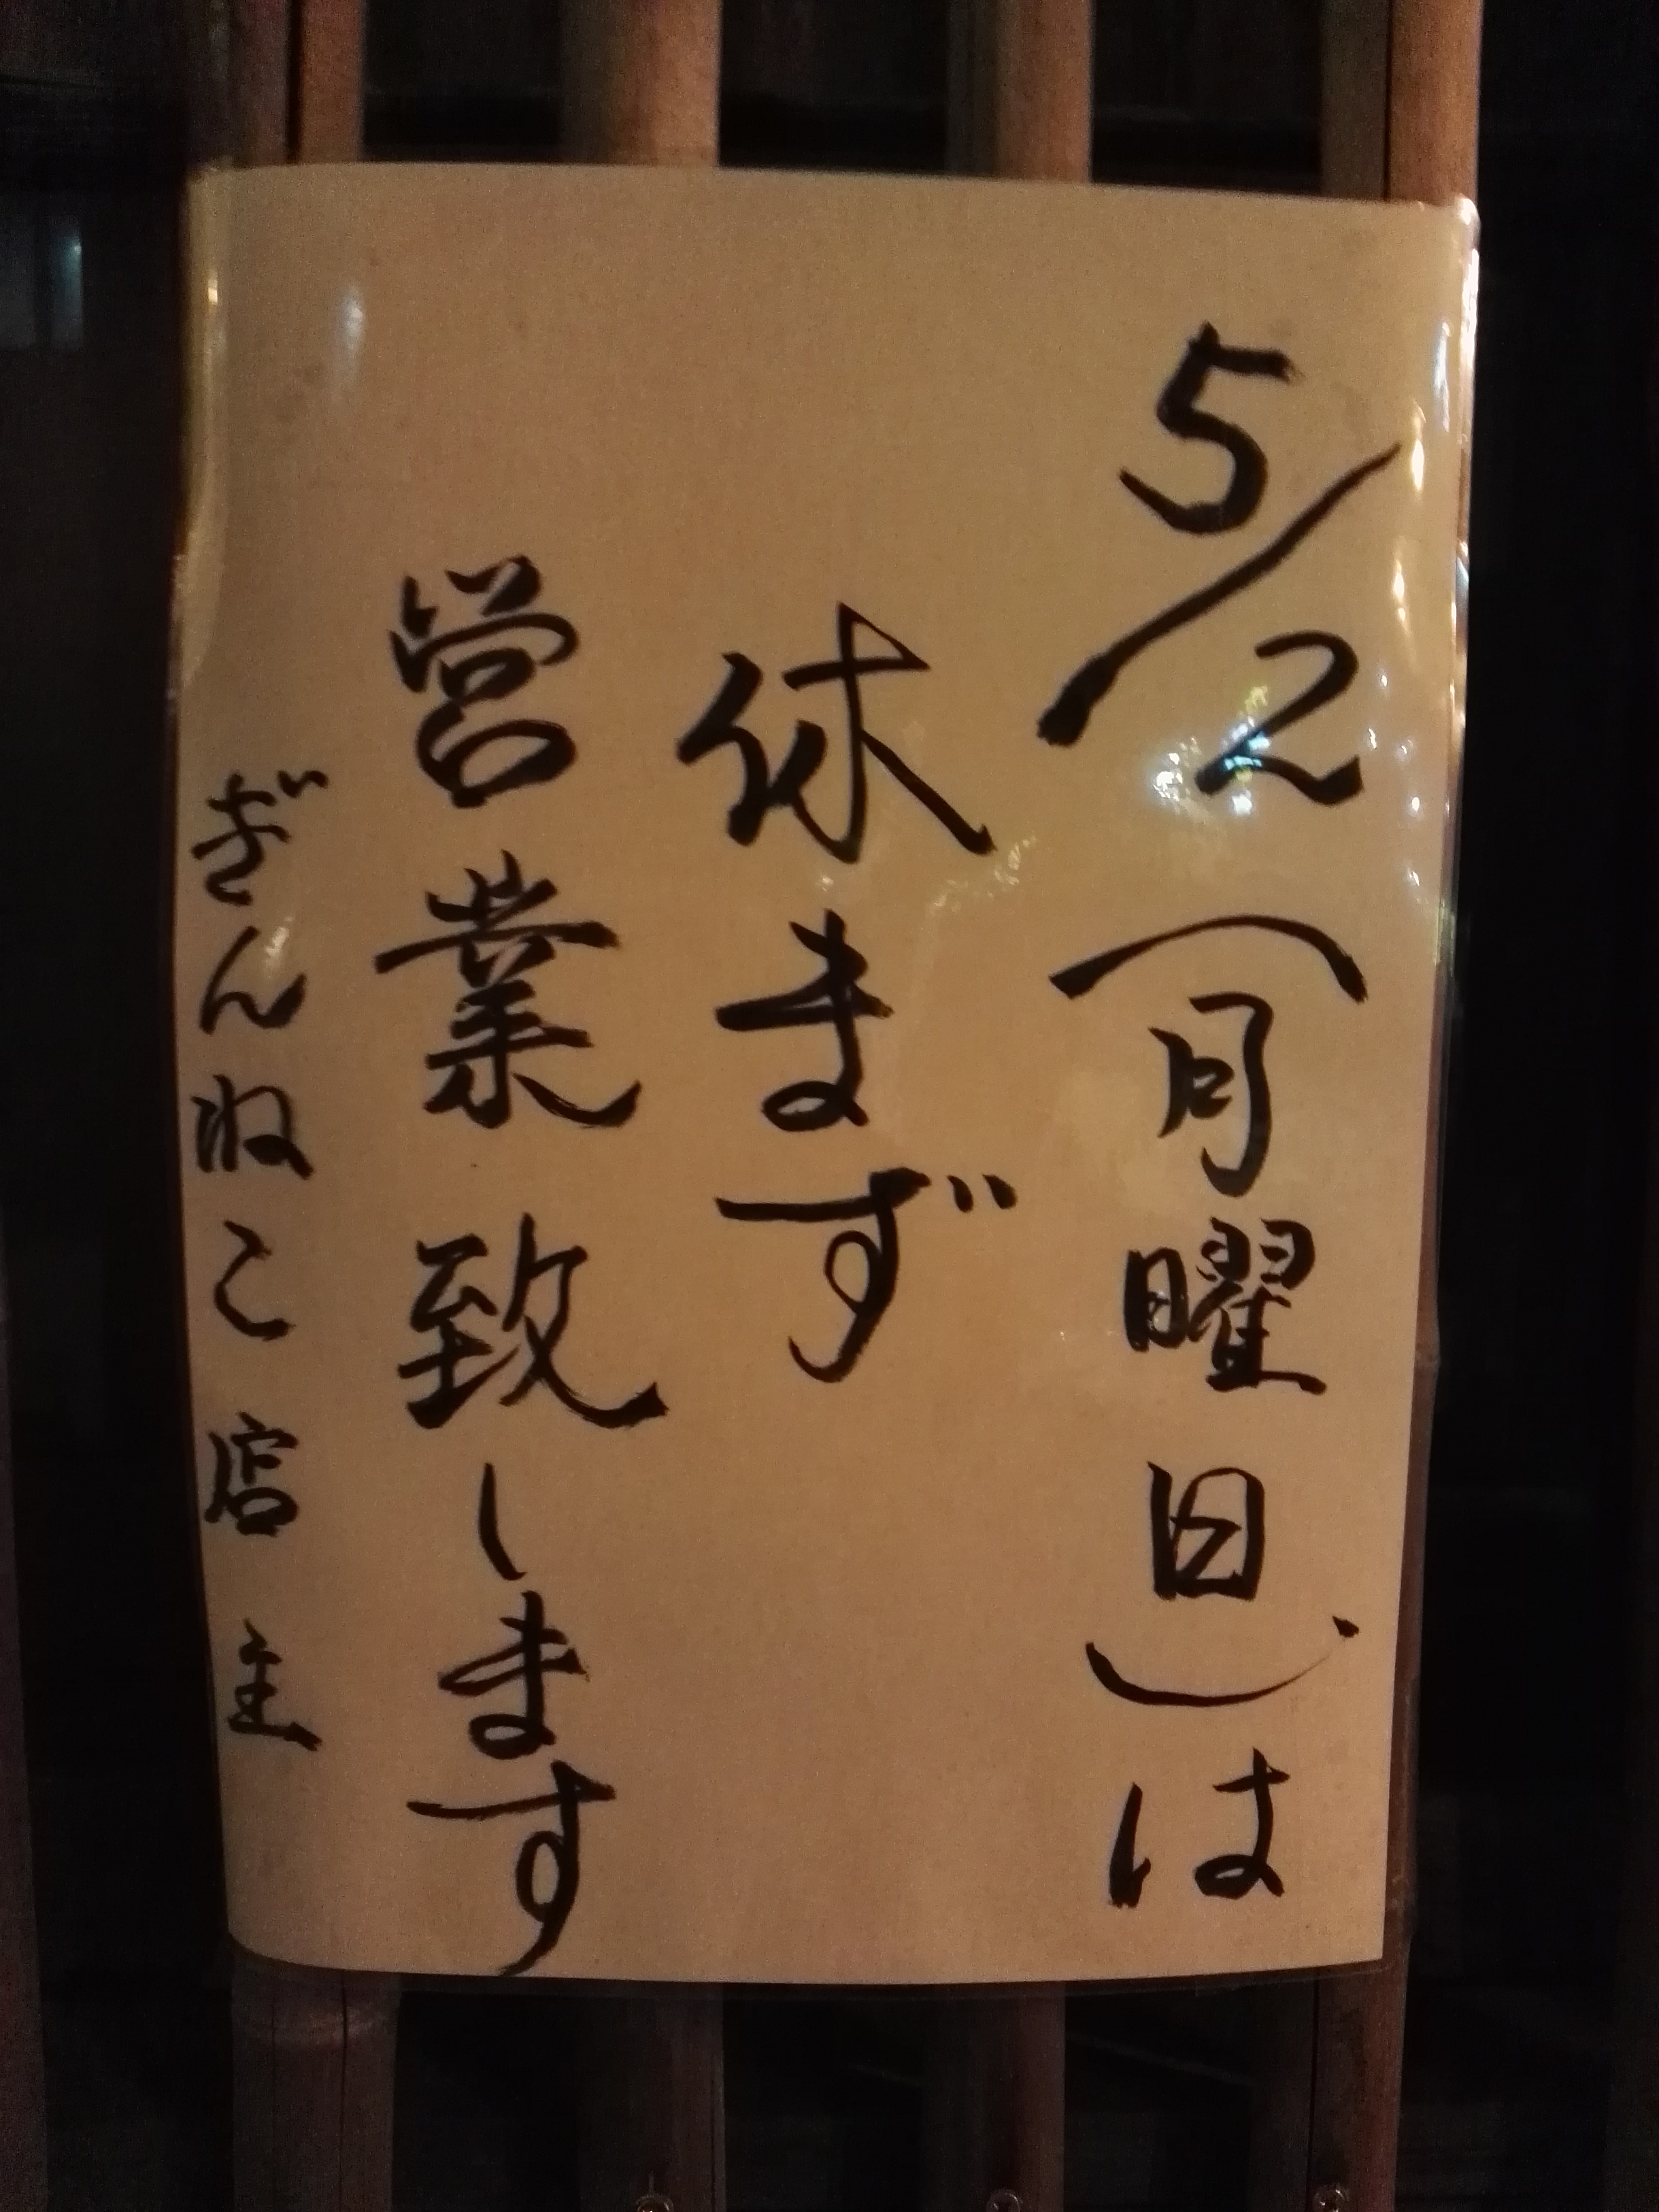 5/2(月曜日)は
休まず
営業致します
ぎんねこ店主